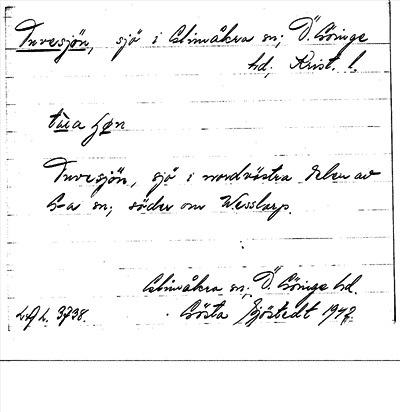 Tuvesjön, sjö i Glimåkra sn; Ö. Göinge
hd, Krist. l.
Tuvesjön, sjö i nordvästra delen av
G-a sn; söder om Wesslarp.
Glimåkra sn, Ö. Göinge hd.
Gösta Sjöstedt 1947.